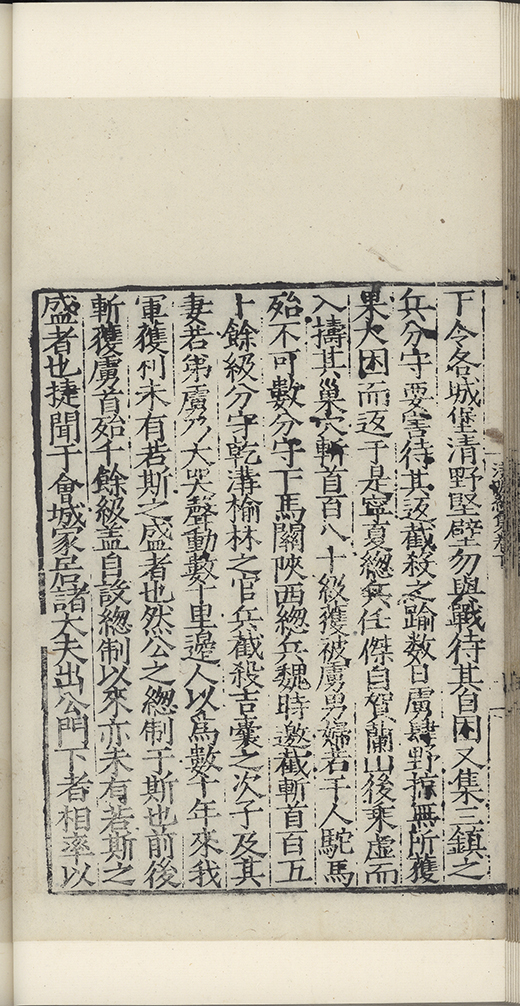 下令各城堡清野堅壁勿與戰待其自困又集三鎮之
兵分守要害待其返截殺之踰数日虜肆野掠無所獲
果大困而返于是寧夏總兵任傑自賀蘭山後乘虛而
入擣其巢穴斬首百八十級獲被虜男婦若干人駝馬
殆不可數分守下馬關陝西總兵魏時邀截斬首百五
十餘級分守乾溝榆林之官兵截殺吉囊之次子及其
妻若弟虜乃大哭聲動數十里邊人以為數十年來我
軍獲利未有若斯之盛者也然公之總制于斯也前後
斬獲虜首殆千餘級盖自設總制以來亦未有若斯之
盛者也捷聞于會城家居諸大夫出公門下者相率以